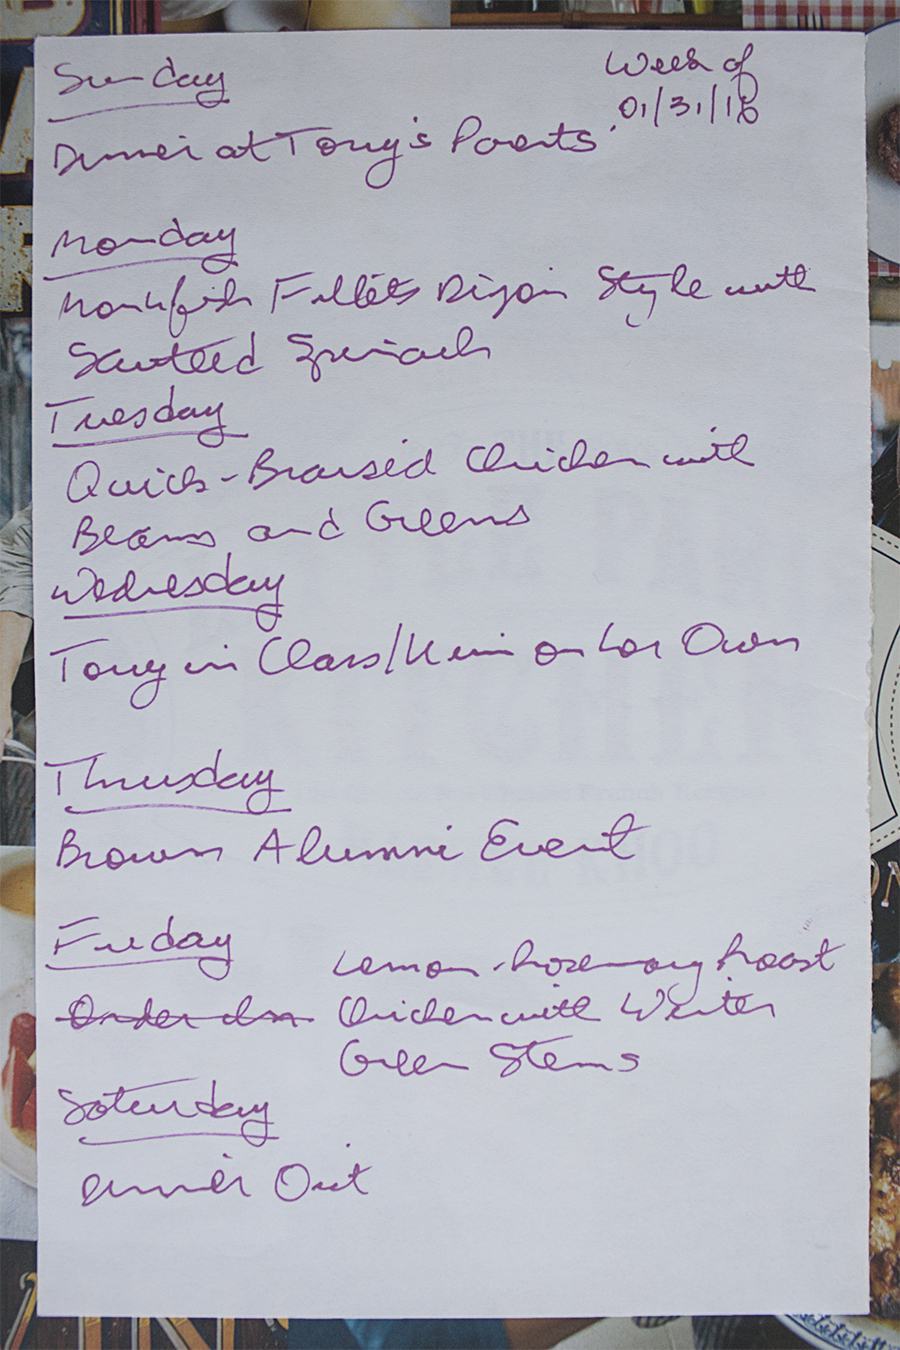 Sunday
Week of
01/31/16
Dinner at Tony's Parents'
Monday
Monkfish Fillets Dijon Style with
Sauteed Spinach
Tuesday
Quick-Braised Chicken with
Beans and Greens
Wednesday
Tony in Class/Kim on her Own
Thrusday
Brown Alumni Event
Friday
Lemon-Rosemary Roast
Order In Chicken with Winter
Green Stems
Saturday
Dinner Out